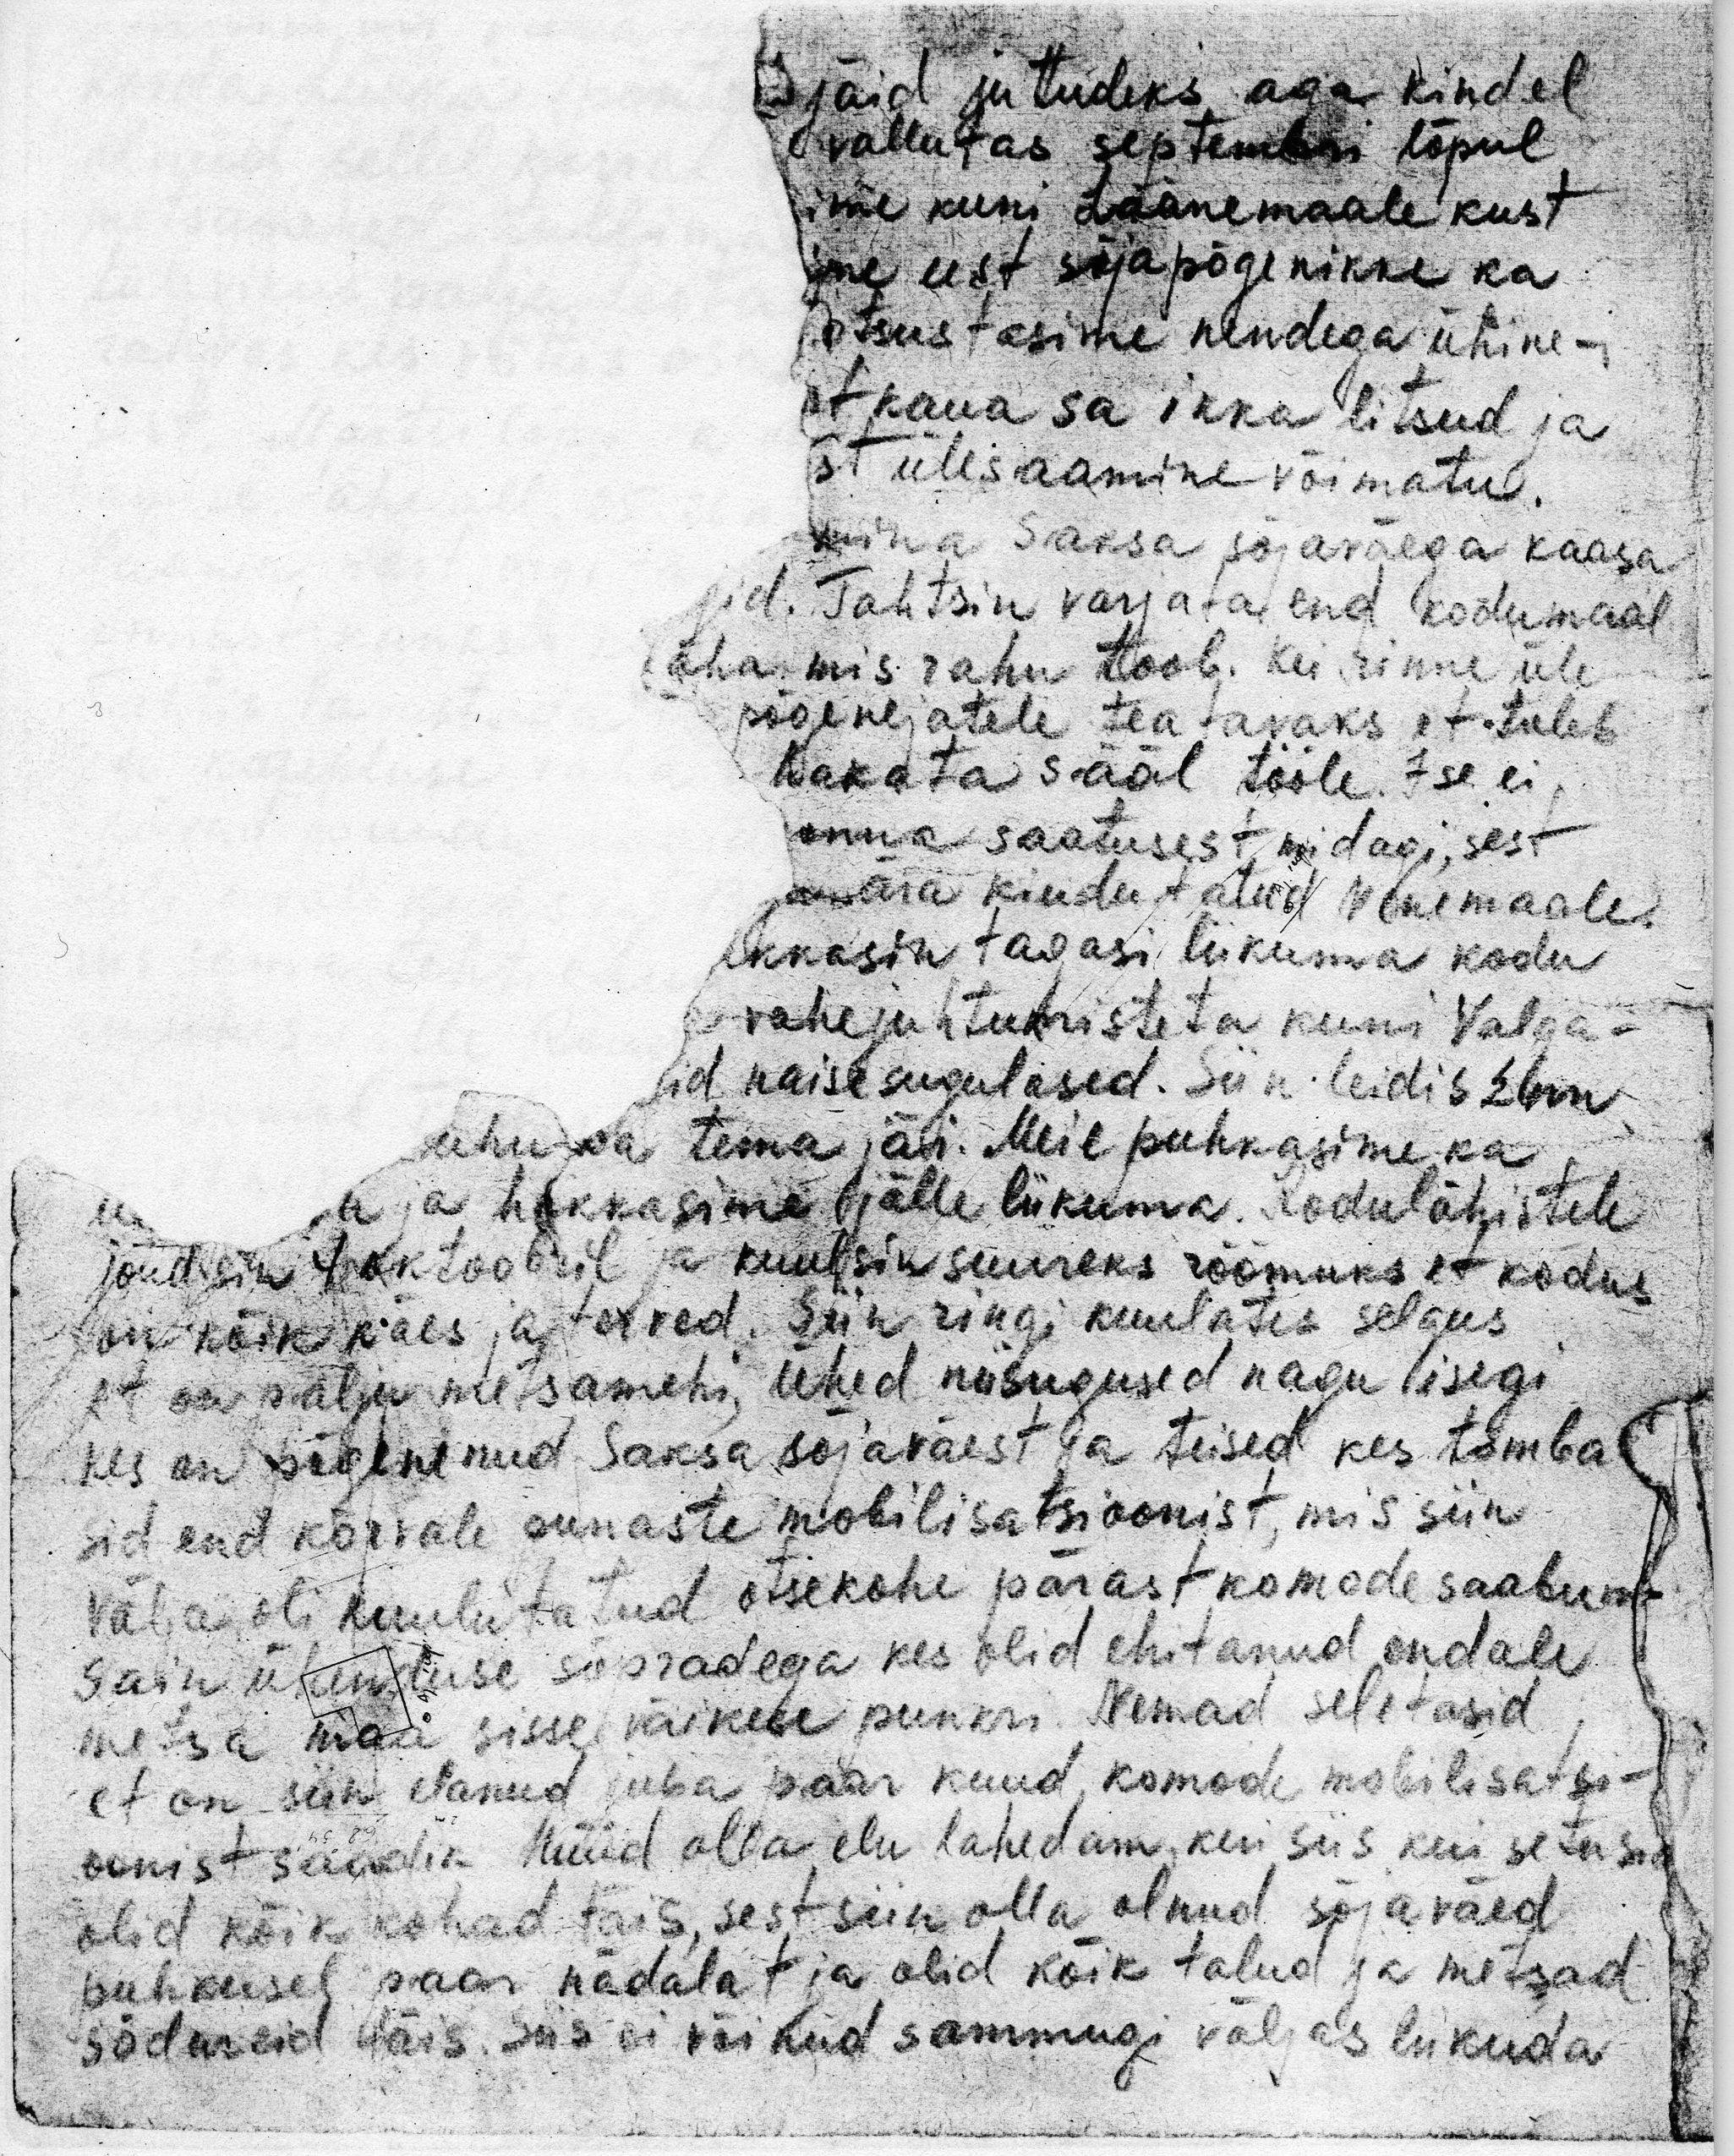 jäid juttudeks aga kindel
vallutas septembri lõpul
ime kuni Läänemaale kust
ime eest sõjapõgenikke ka
otsustasime nendega ühine-
et kaua sa ikka litsud ja
st ülesaamine võimatu.
mina Saksa sõjaväega kaasa
jid. Tahtsin varjata end kodumaal
mis rahu toob. Kui rinne üle
põgenejatele teatavaks et tuleb
hakata sääl tööle. Ise ei
onna saatusest midagi, sest
ära küüditatud Venemaale.
kkasin tagasi liikuma kodu
vahejuhtumisteta kuni Valga-
id naisesugulased. Siin leidis
tema jäi. Meie puhkasime ka
ja hakkasime jälle liikuma. Kodulähistele
jõudsin oktoobril ja kuulsin suureks rõõmuks et kodus
on kõik käes ja terved. Siin ringi kuulates selgus
et on palju metsamehi, ühed niisugused nagu isegi
kes on põgenenud Saksa sõjaväest ja teised kes tõmba
sid end kõrvale punaste mobilisatsioonist, mis siin
välja oli kuulutatud otsekohe pärast komode saabum-
Sain ühenduse sõpradega kes olid ehitanud endale
metsa maa sisse väikese punkri. Nemad seletasid
et on siin elanud juba paar kuud, komode mobilisatsi-
oonist saadik. Nüüd olla elu lahedam, kui siis kui
olid kõik kohad täis, sest siin olla olnud sõjaväed
puhkusel paar nädalat ja olid kõik talud ja metsad
sõdureid täis. Siis ei võinud sammugi väljas liikuda